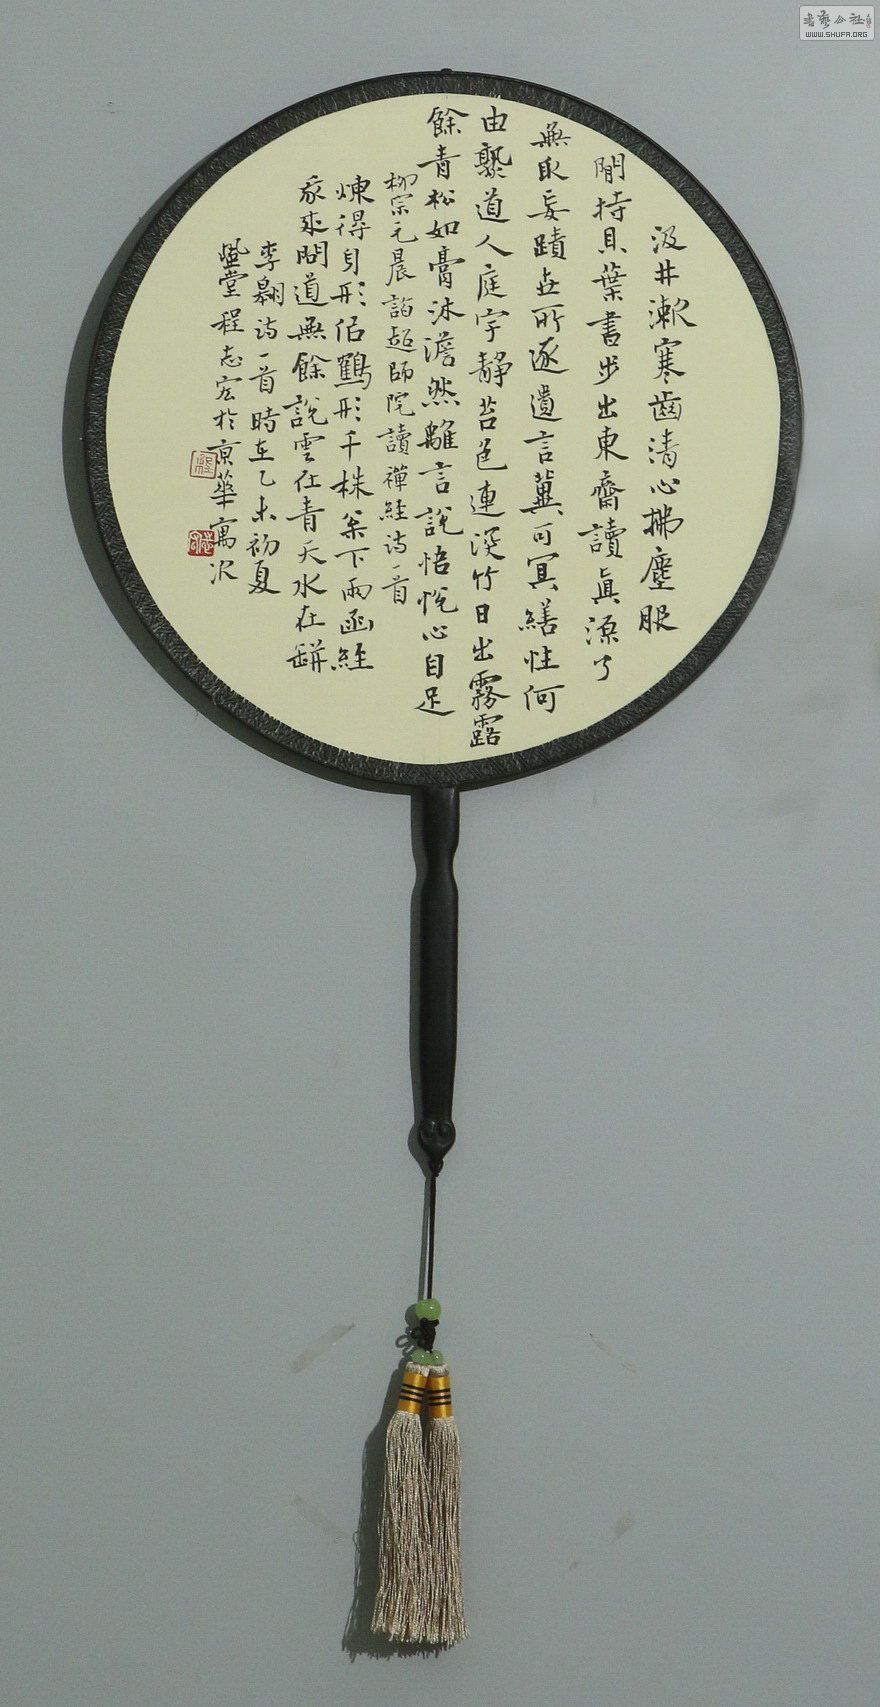 汲井漱寒齒清心拂塵服
閒持貝葉書步出東齋讀真源了
無取妄蹟世所逐遺言冀可冥繕性何
由熟道人庭宇靜苔色連深竹日出霧露
餘青松如膏沐澹然離言說悟悅心自足
柳宗元晨詣超師院讀禪經詩一首
煉得身形佀鶴形千株松下兩函經
我來問道無餘說雲在青天水在缾
李翱詩一首時在乙未初夏
堂程志宏於京華寓次
書藝公社
WWW.SHUFA.ORG